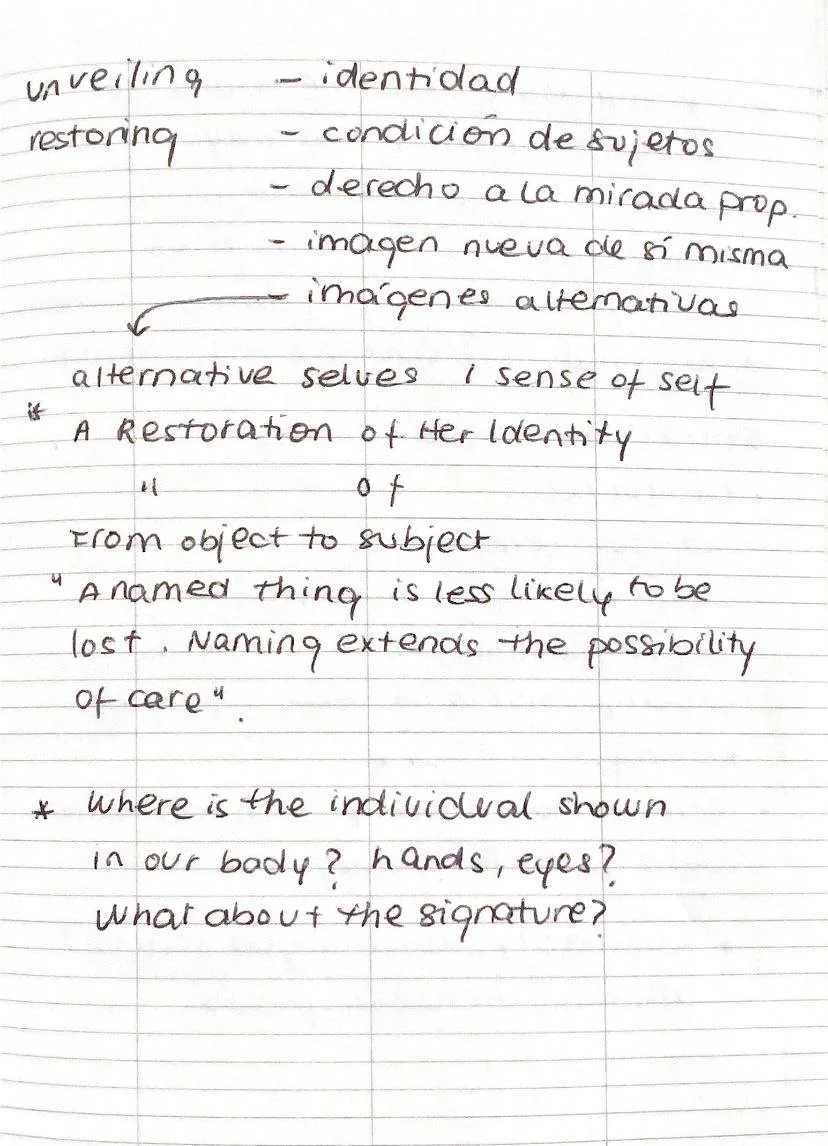 unveiling - identidad
restoring - condición de sujetos
- derecho a la mirada prop.
- imagen nueva de sí misma
- imágenes alternativas
alternative selves / sense of self
* A Restoration of Her Identity
" of
From object to subject
"A named thing is less likely to be
lost. Naming extends the possibility
of care".
* Where is the individual shown
in our body? hands, eyes?
What about the signature?